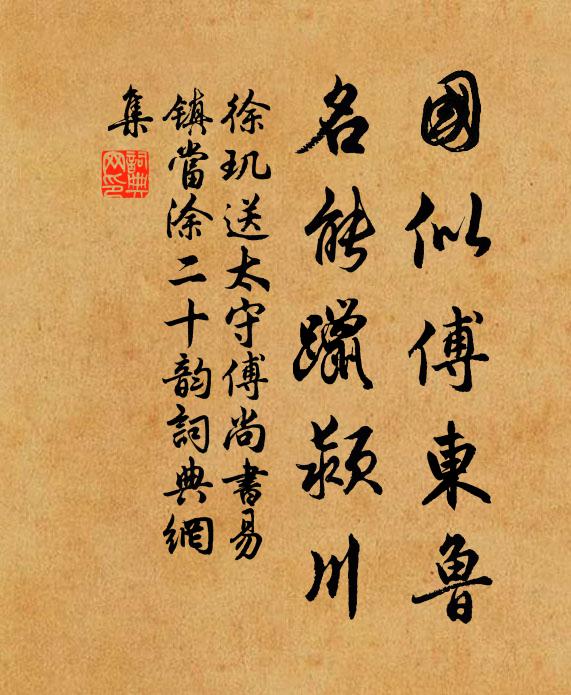 國似傅東魯
名能躐潁川
徐玑送太守傅尚書易
镇當涂二十韵詞典網
集
詞典
网印